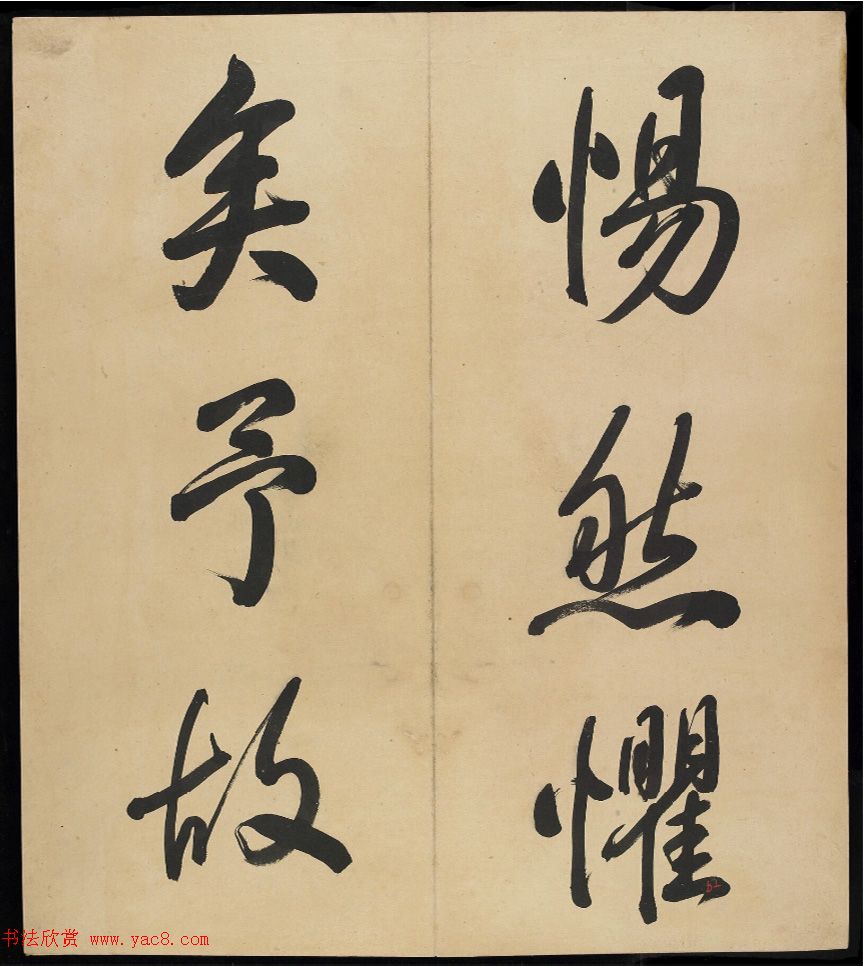 惕然懼
矣予故
书法欣赏 www.yac8.com